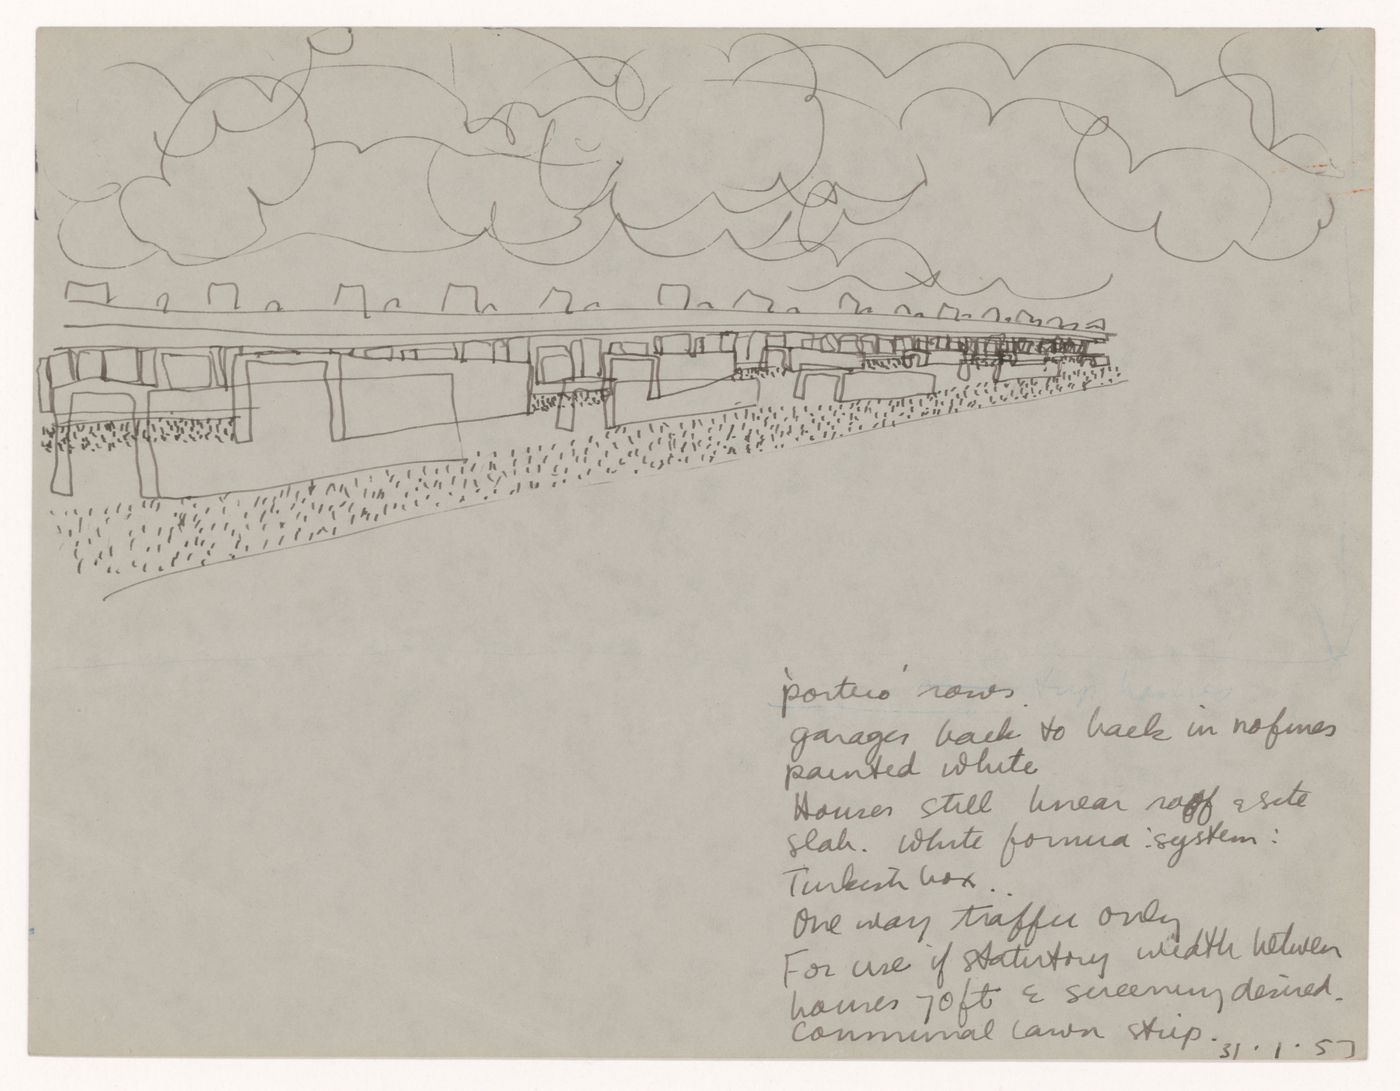 'portico' rows.
garages back to back in nofines
painted white
Houses still linear roof & site
slab. White formica :system:
Turkish box..
One way traffic only
For use if statutory width between
houses 70ft & screening desired.
Communal lawn strip.
31.1.57